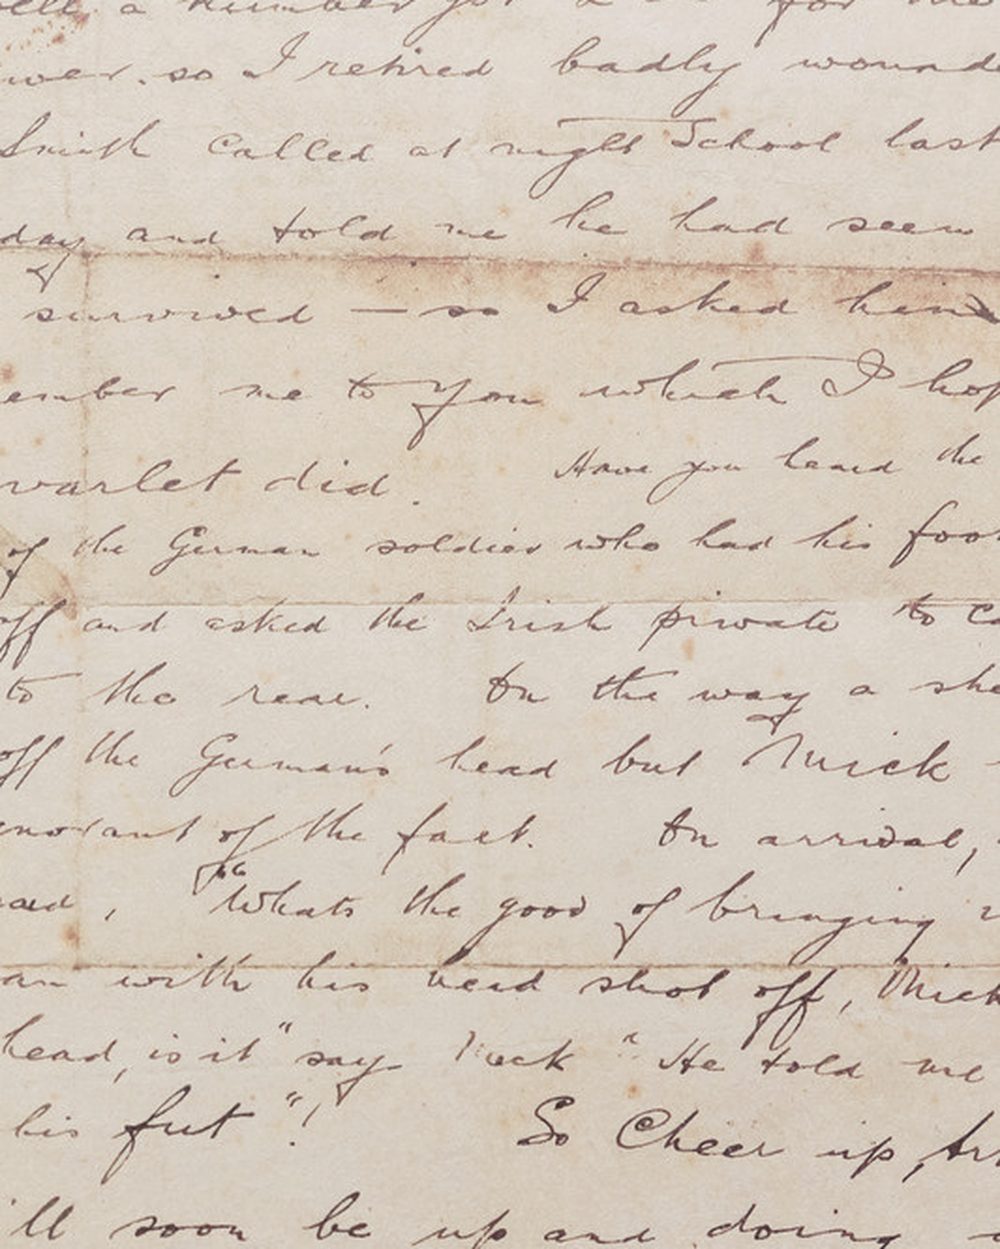 a number for me
so I retired badly wounde
Smith called at night School last
day and told me he had seen
survived — so I asked him
ember me to you which I hop
varlet did. Have you heard the
of the German soldier who had his foot
off and asked the Irish private to ca
to the rear. On the way a she
off the German's head but Mick
gnorant of the fact. On arrival,
said, "Whats the good of bringing
an with his head shot off, Mick
head, is it" say Mick "He told me
his feet"!
So Cheer up, Art
'll soon be up and doing